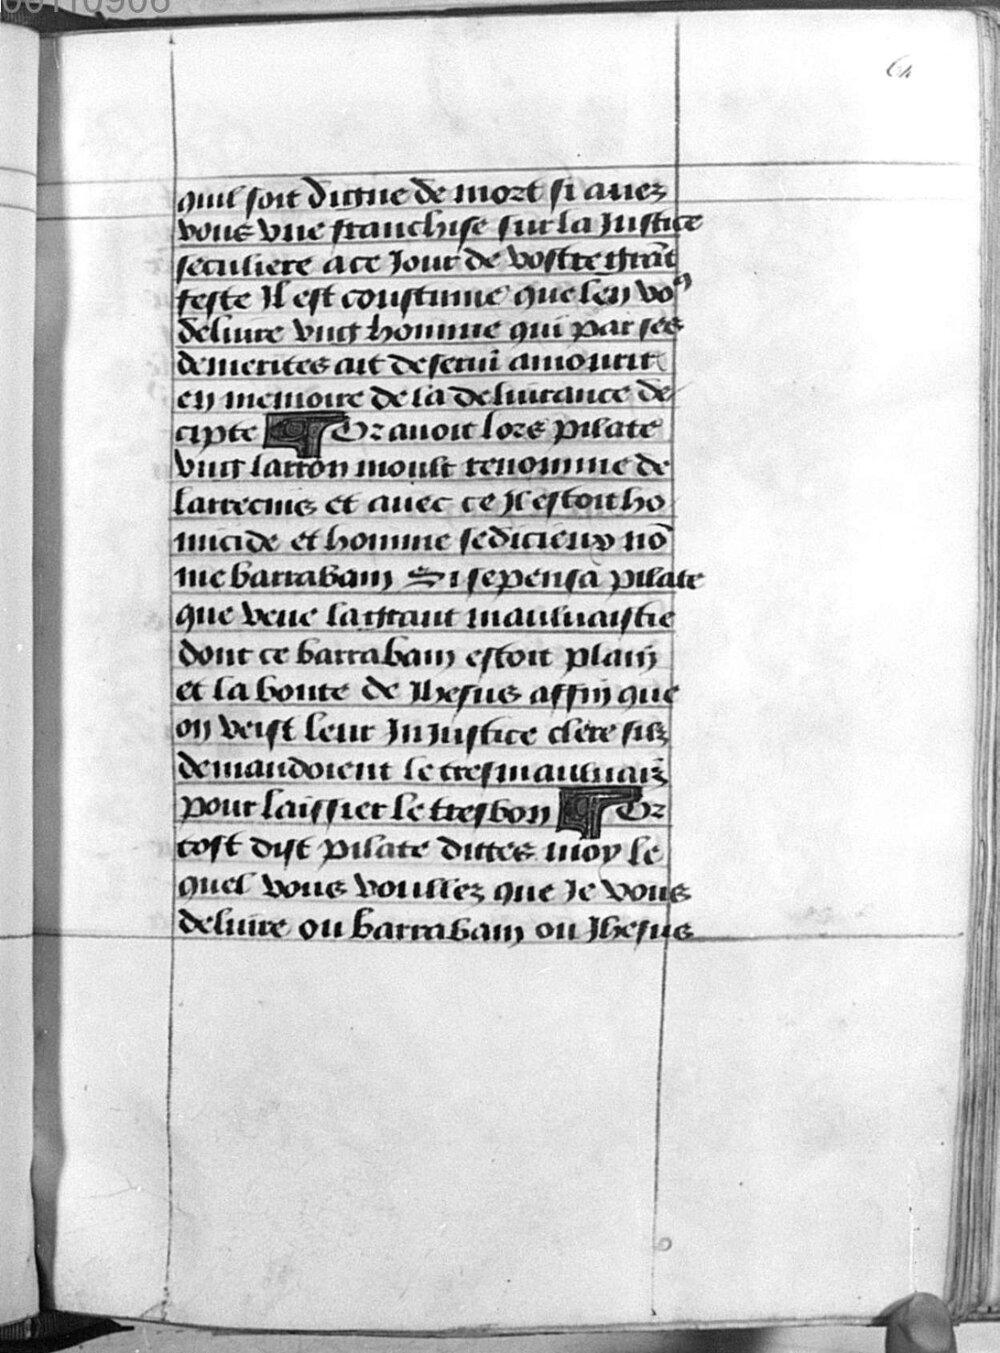 00110906
64
quil soit digne de mort si auez
vous vne franchise sur la Justice
seculiere a ce Jour de vostre grãt
feste Il est coustume que len voꝰ
deliure vng homme qui par ses
demerites ait deserui a mourir
en memoire de la deliurance de
cipte ¶ Or auoit lors pilate
vng larron moult renomme de
larrecins et auec ce Il estoit ho
micide et homme sedicieux nõ
me barraban Si se pensa pilate
que veue la grant mauluaistie
dont ce barraban estoit plain
et la bonte de Jhesus affin que
on veist leur InJustice clere silz
demandoient le tresmauluaiz
pour laissier le tresbon ¶ Or
tost dist pilate dittes moy le
quel vous voullez que Je vous
deliure ou barraban ou Jhesus